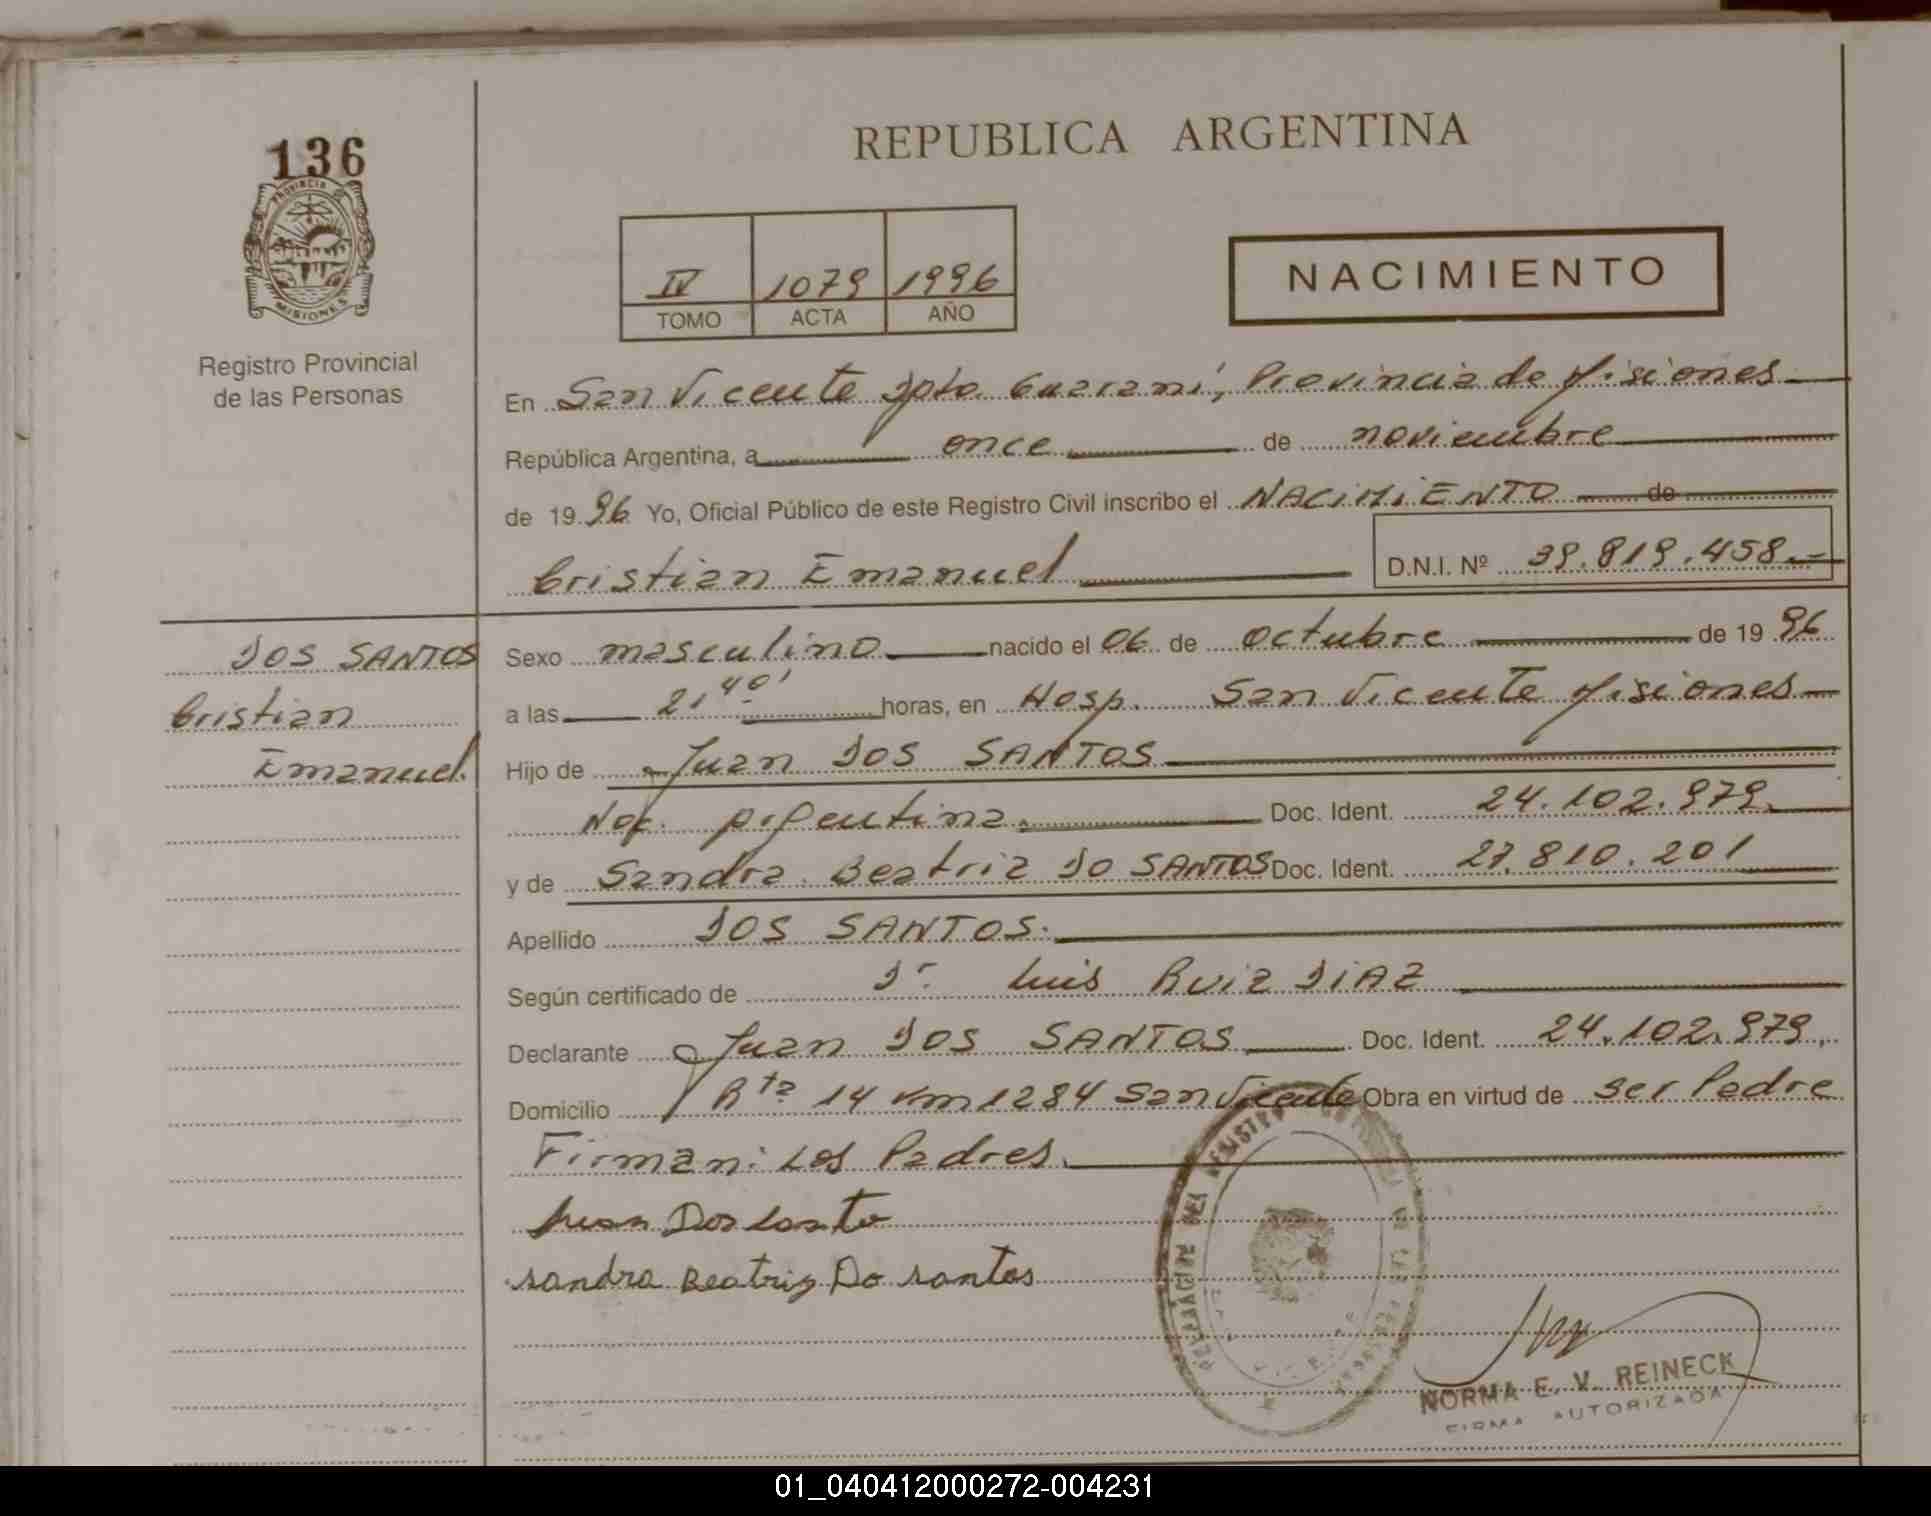 136
PROVINCIA
MISIONES
Registro Provincial
de las Personas
REPUBLICA ARGENTINA
IV 1079 1996
TOMO ACTA AÑO
NACIMIENTO
En San Vicente Dpto. Guaraní, Provincia de Misiones
República Argentina, a once de noviembre
de 1996 Yo, Oficial Público de este Registro Civil inscribo el NACIMIENTO de
Cristian Emanuel D.N.I. Nº 39.819.458.-
DOS SANTOS
Cristian
Emanuel.
Sexo masculino nacido el 06 de octubre de 1996
a las 21,40' horas, en Hosp. San Vicente Misiones
Hijo de Juan DOS SANTOS
Nac. Argentina. Doc. Ident. 24.102.979.
y de Sandra Beatriz DO SANTOS Doc. Ident. 27.810.201
Apellido DOS SANTOS.
Según certificado de Dr. Luis RUIZ DIAZ
Declarante Juan DOS SANTOS Doc. Ident. 24.102.979.
Domicilio Rta 14 Km 1284 San Vicente Obra en virtud de ser Padre
Firman: Los Padres.
Juan Dos santo
sandra Beatriz Do santos
NORMA E. V. REINECK
FIRMA AUTORIZADA
01_040412000272-004231